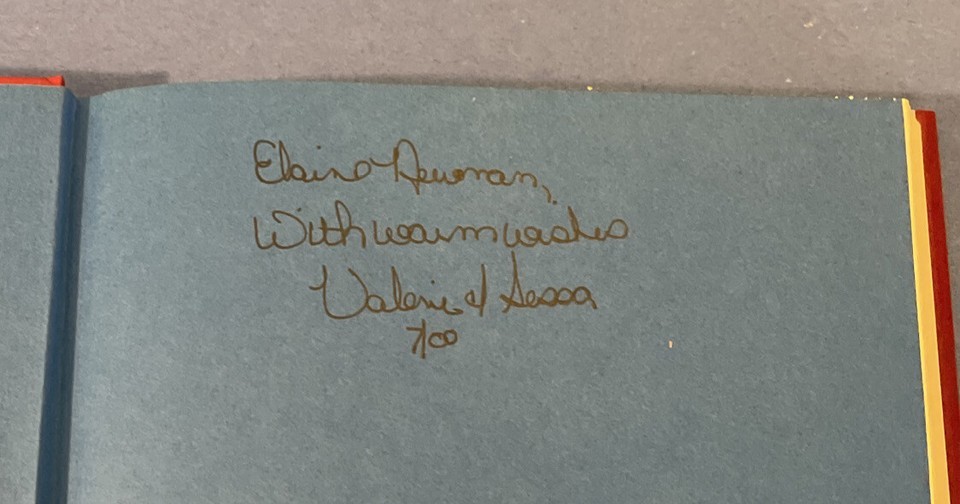 Elaine Newman,
With warm wishes
Valerie I Sessa
7/00